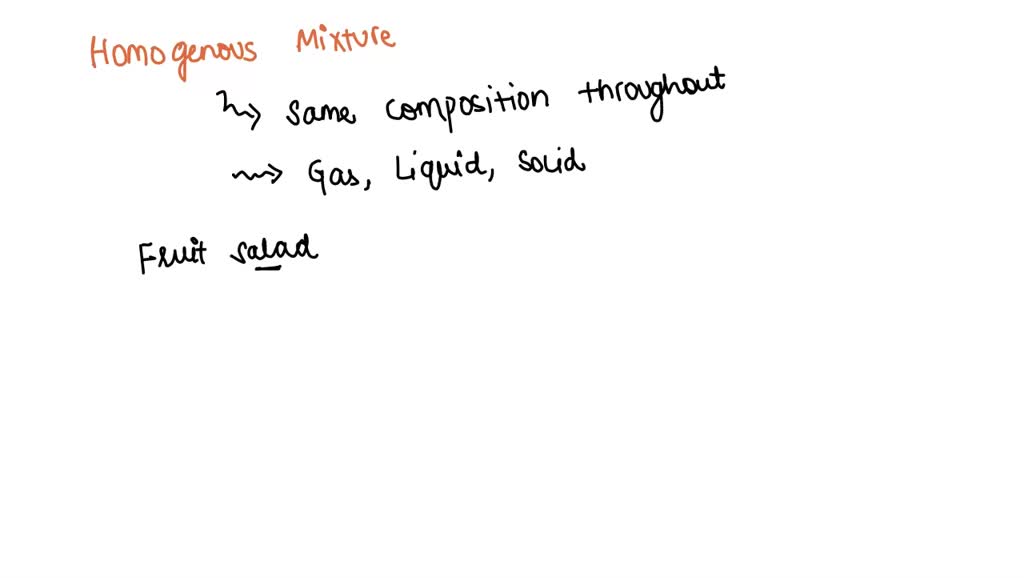 Homogenous Mixture
Same composition throughout
Gas, Liquid, Solid
Fruit salad